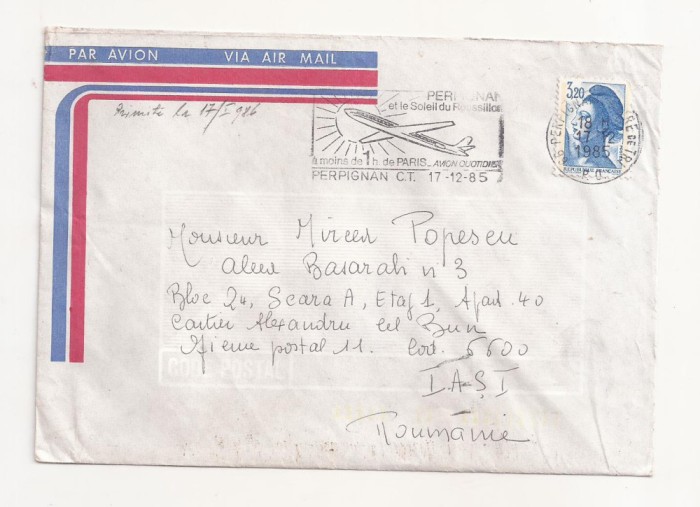 PAR AVION VIA AIR MAIL
Primită la 17/I 986
PERPIGNAN
et le Soleil du Roussillon
à moins de 1 h. de PARIS_ AVION QUOTIDIEN
PERPIGNAN C.T. 17-12-85
3,20
18 H
17-12
1985
Monsieur Mircea Popescu
aleea Basarabi n° 3
Bloc 24, Scara A, Etaj 1, Apart. 40
Cartier Alexandru cel Bun
Oficiul postal 11. Cod. 6600
IAŞI
Roumanie
CODE POSTAL